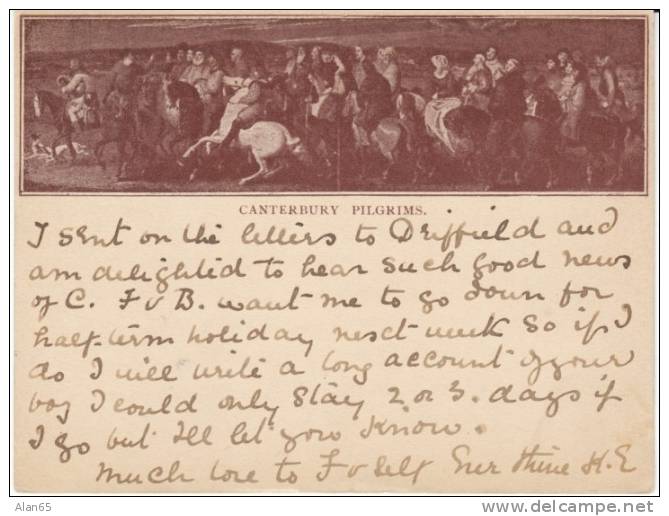 CANTERBURY PILGRIMS.
I sent on the letters to Driffield and
am delighted to hear such good news
of C. F & B. want me to go down for
half term holiday next week so if I
do I will write a long account of your
boy I could only stay 2 or 3. days if
I go but I'll let you know.
Much love to F & self Ever thine H.E
Alan65
www.delcampe.net